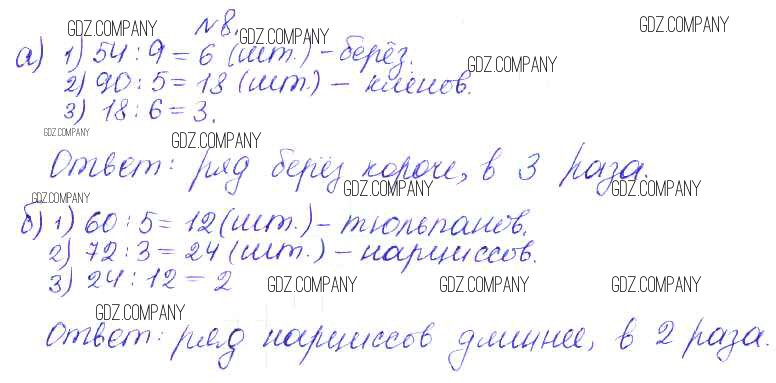 №8.
GDZ.COMPANY GDZ.COMPANY GDZ.COMPANY
а) 1) 54 : 9 = 6 (шт.) – берёз.
GDZ.COMPANY
2) 90 : 5 = 18 (шт.) – клёнов.
3) 18 : 6 = 3.
GDZ.COMPANY GDZ.COMPANY
Ответ: ряд берёз короче, в 3 раза.
GDZ.COMPANY GDZ.COMPANY GDZ.COMPANY
б) 1) 60 : 5 = 12 (шт.) – тюльпанов.
2) 72 : 3 = 24 (шт.) – нарциссов.
3) 24 : 12 = 2
GDZ.COMPANY GDZ.COMPANY GDZ.COMPANY
GDZ.COMPANY
Ответ: ряд нарциссов длиннее, в 2 раза.